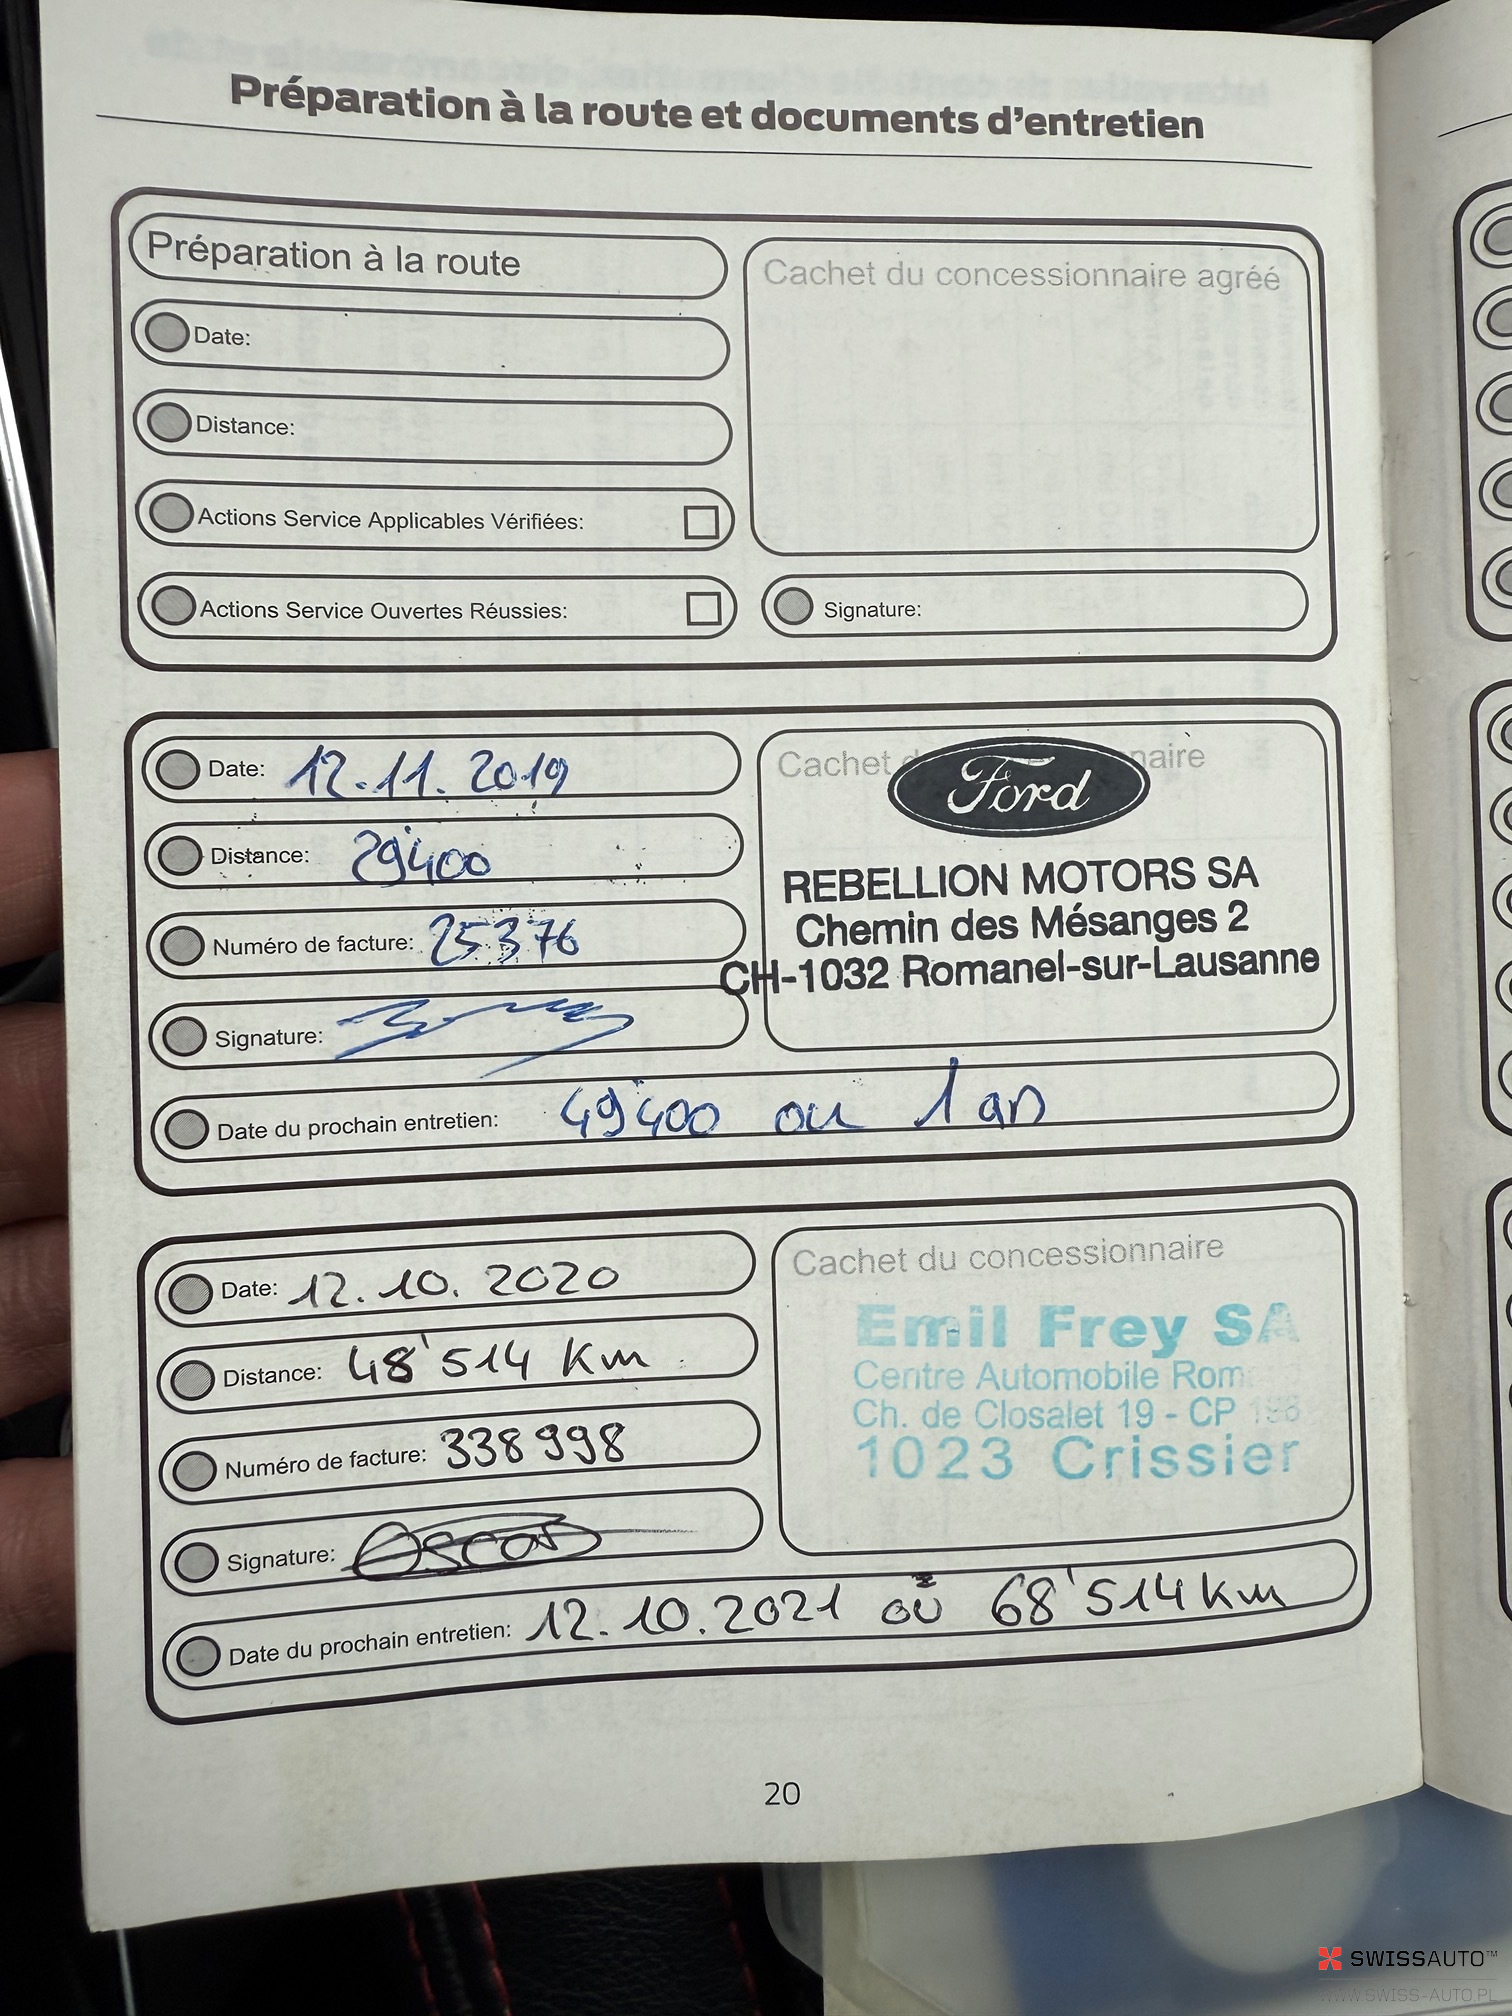 Préparation à la route et documents d'entretien
Préparation à la route
Cachet du concessionnaire agréé
Date:
Distance:
Actions Service Applicables Vérifiées:
Actions Service Ouvertes Réussies:
Signature:
Date: 12.11.2019
Distance: 29'400
Numéro de facture: 25376
Signature:
Date du prochain entretien: 49'400 ou 1 an
Cachet naire
Ford
REBELLION MOTORS SA
Chemin des Mésanges 2
CH-1032 Romanel-sur-Lausanne
Date: 12.10.2020
Distance: 48'514 Km
Numéro de facture: 338998
Signature:
Date du prochain entretien: 12.10.2021 ou 68'514 Km
Cachet du concessionnaire
Emil Frey SA
Centre Automobile Rom
Ch. de Closalet 19 - CP
1023 Crissier
20
SWISSAUTO™
WWW.SWISS-AUTO.PL